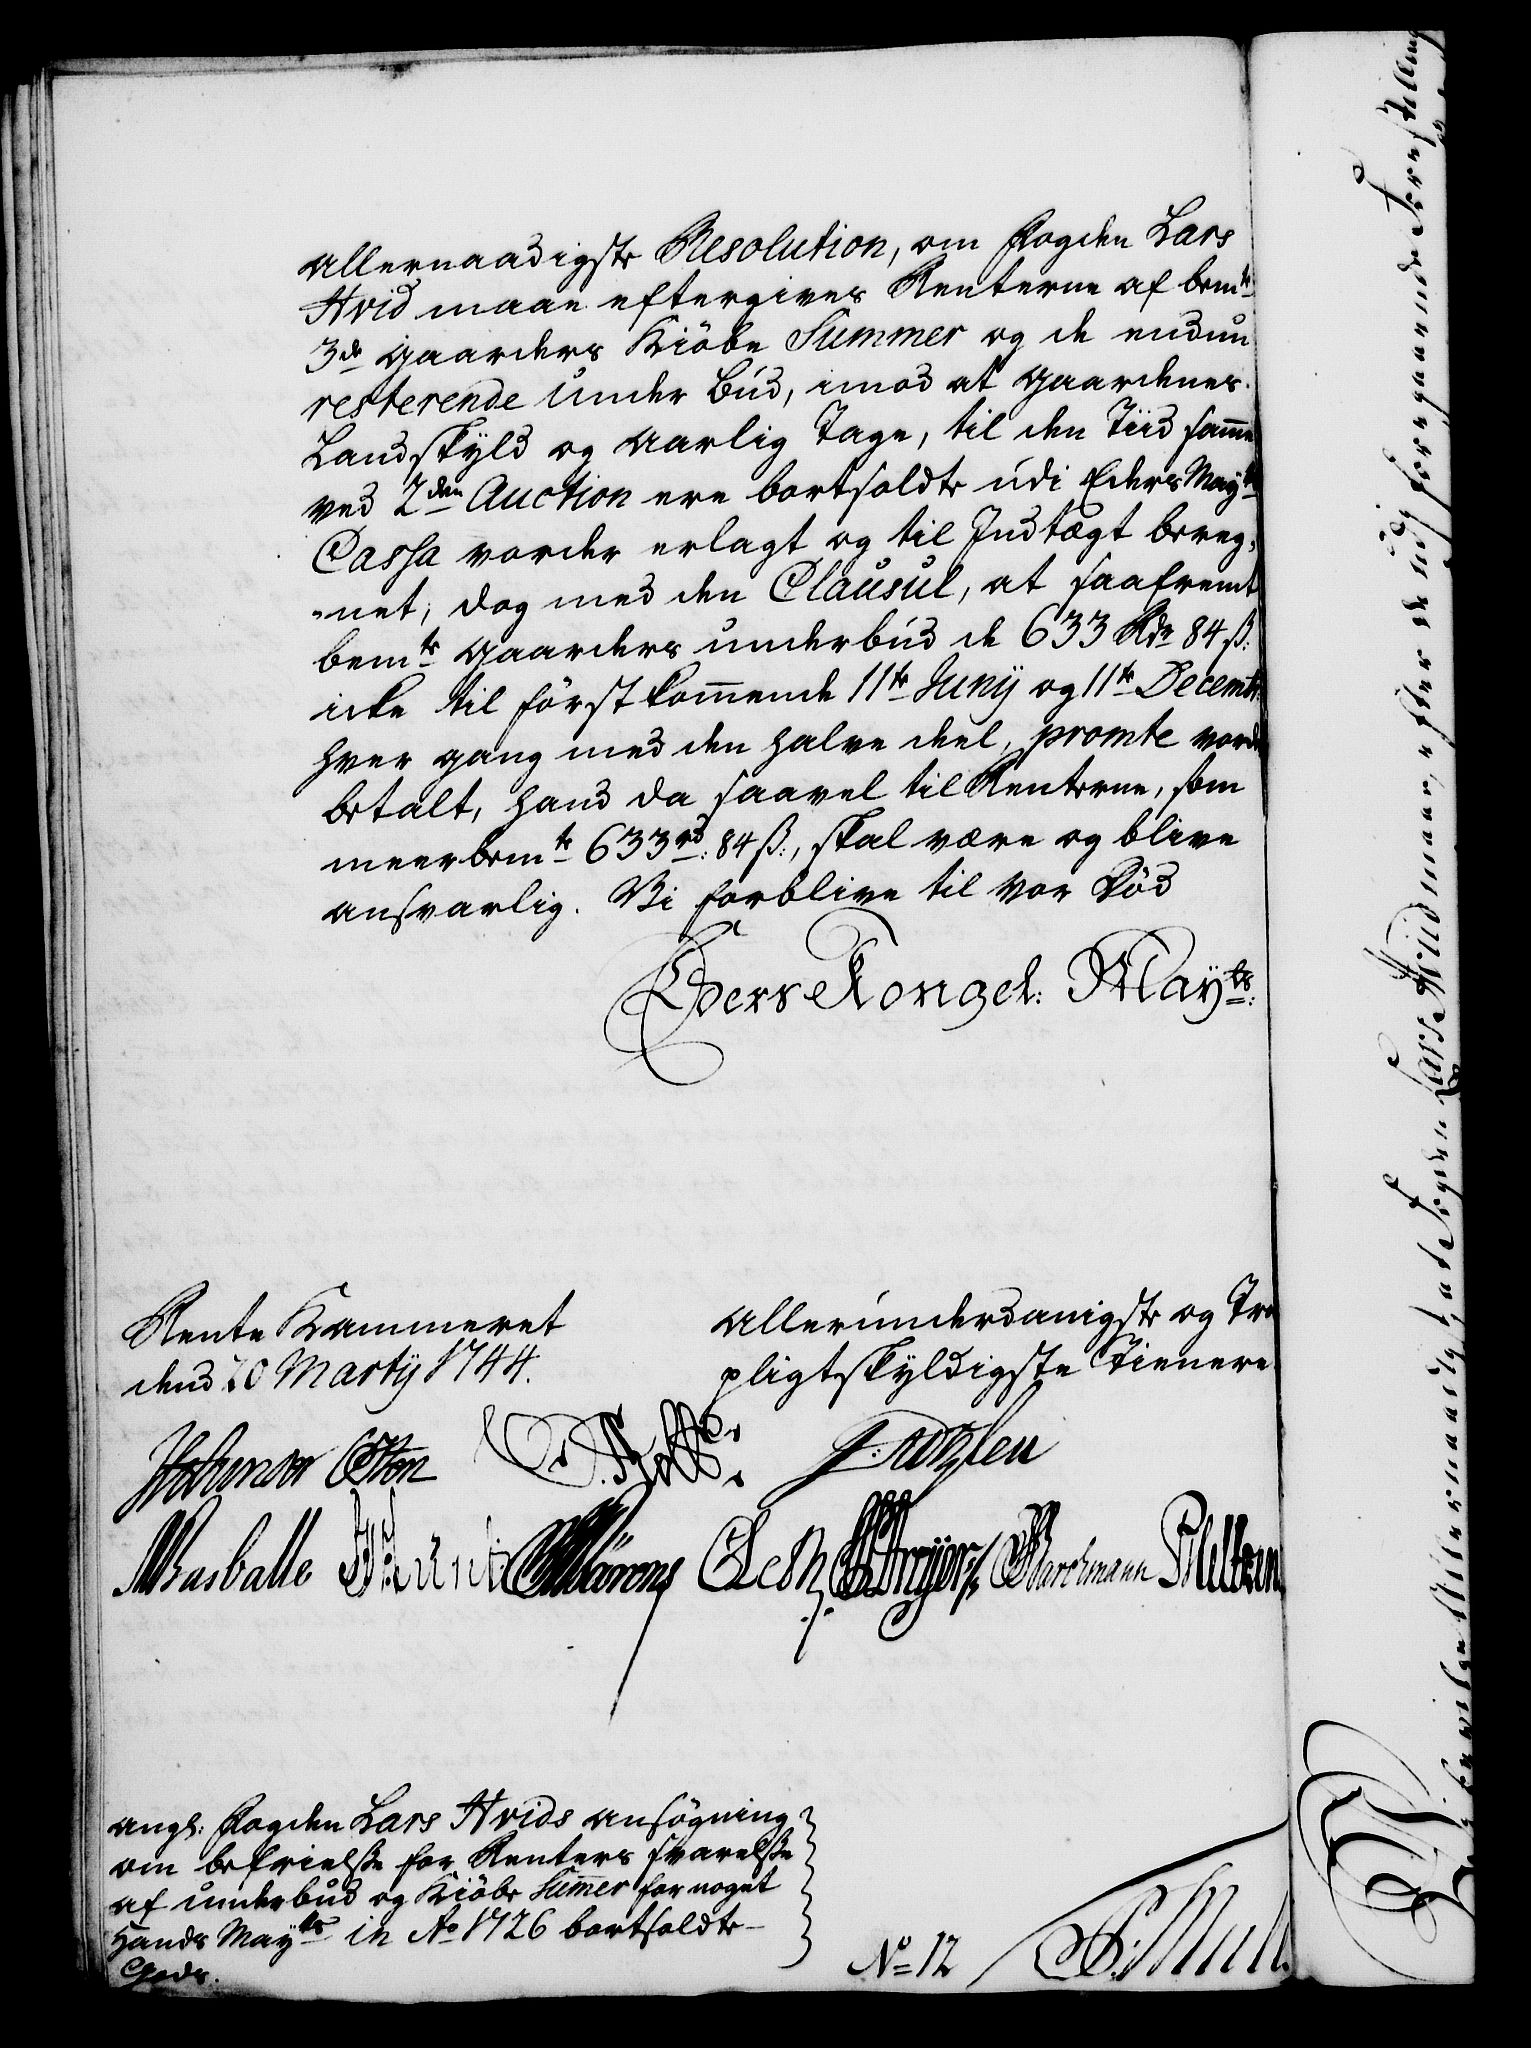 allernaadigste Resolution, om Fogden Lars
Hvid maae eftergives Renterne af bemte
3de gaarders Kiöbe Summer og de endnu
resterende Under Bud, imod at gaardenes
Landskyld og aarlig Tage, til den Tiid samme
ved 2den Auction ere bortsoldte udi Eders Mayts
Cassa vorder erlagt og til Indtægt bereg,
net; dog med den Clausul, at saafremt
bemte gaarders underbud de 633 Rdr 84 ß:
icke til först kommende 11te Juny og 11te Decembr
hver gang med den halve deel, promte vorde
betalt, hand da saavel til Renterne, som
meerbemte 633 rd: 84 ß:, skal være og blive
ansvarlig. Vi forblive til vor Död
Eders Kongel: Mayts:
Rente Kammeret
dend 20 Marty 1744.
allerunderdanigste og Tro
pligtskyldigste Tienere
Basballe
Leth
Barchmann
ang: Fogden Lars Hvids ansögning
om befrielse for Renters svarelse
af underbud og Kiöbe Summer for noget
Hands Mayts in Ao 1726 bortsoldte
Gods.
No 12
Vi bevilge Allernaadigst, at Fogden Lars Hviid maae, efter de udj foregaaende Forestilling